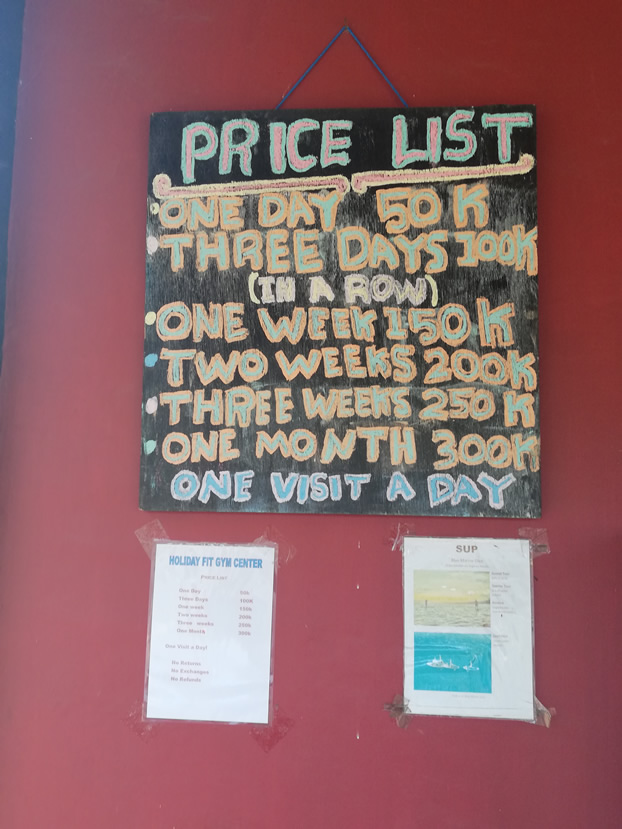 PRICE LIST
ONE DAY 50 K
THREE DAYS 100K
(IN A ROW)
ONE WEEK 150 K
TWO WEEKS 200K
THREE WEEKS 250 K
ONE MONTH 300K
ONE VISIT A DAY
HOLIDAY FIT GYM CENTER
PRICE LIST
One Day 50k
Three Days 100K
One week 150k
Two weeks 200k
Three weeks 250k
One Month 300k
One Visit a Day!
No Returns
No Exchanges
No Refunds
SUP